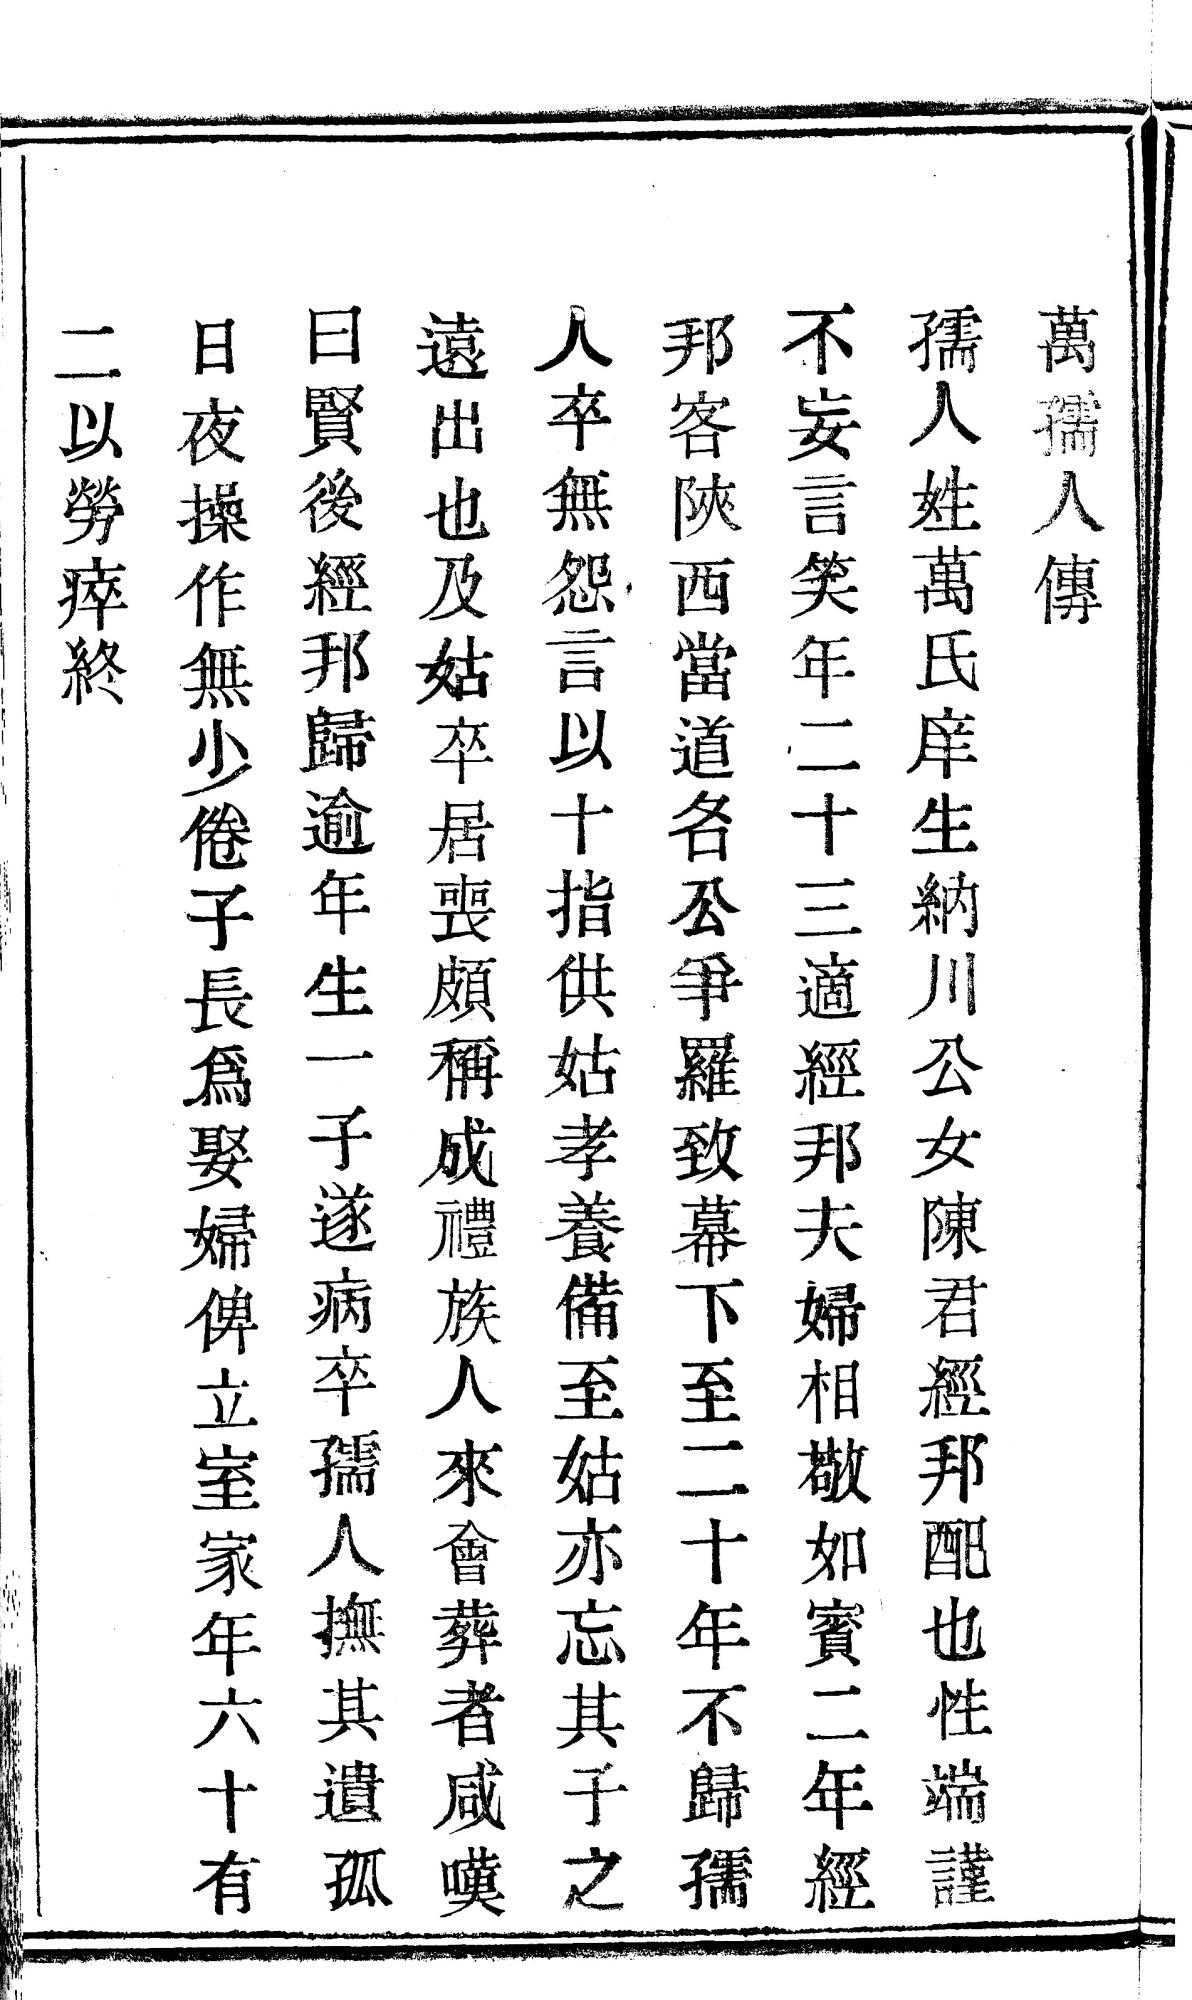 萬孺人傳
孺人姓萬氏庠生納川公女陳君經邦配也性端謹
不妄言笑年二十三適經邦夫婦相敬如賓二年經
邦客陝西當道名公爭羅致幕下至二十年不歸孺
人卒無怨言以十指供姑孝養備至姑亦忘其子之
遠出也及姑卒居喪頗稱成禮族人來會葬者咸嘆
曰賢後經邦歸逾年生一子遂病卒孺人撫其遺孤
日夜操作無少倦子長爲娶婦俾立室家年六十有
二以勞瘁終